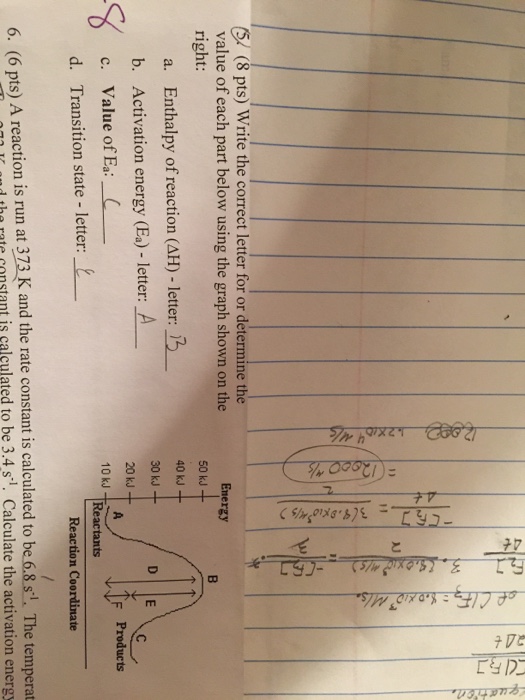 5. (8 pts) Write the correct letter for or determine the
value of each part below using the graph shown on the
right:
a. Enthalpy of reaction (ΔH) - letter: B
b. Activation energy (Ea) - letter: A
c. Value of Ea:
d. Transition state - letter:
-8
Energy
50 kJ
40 kJ
30 kJ
20 kJ
10 kJ
A
B
C
D
E
F
Reactants
Products
Reaction Coordinate
6. (6 pts) A reaction is run at 373 K and the rate constant is calculated to be 6.8 s⁻¹. The temperat
K and the rate constant is calculated to be 3.4 s⁻¹. Calculate the activation energy
quation.
[ClF3]
2Δt
of ClF3 = 8.0x10³ M/s.
F2]
Δt
3.
(8.0x10³ M/s)
2
=
-[F2]
-[F2]
Δt
=
3(8.0x10³ M/s)
2
= 12000 M/s
12000
1.2x10⁴ M/s